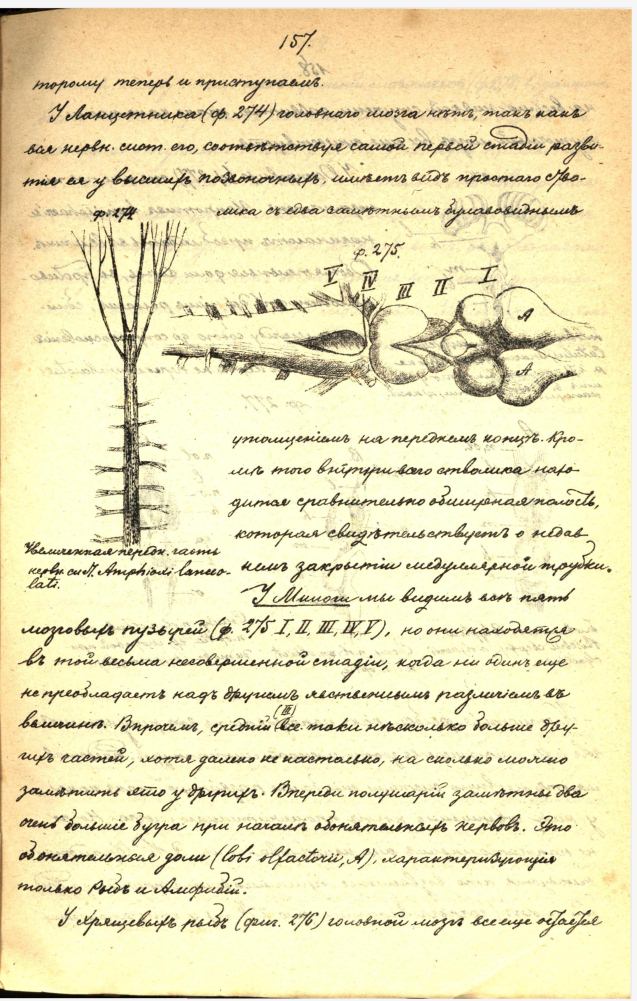 157.
торому теперь и приступаемъ.
У Ланцетника (ф. 274) головного мозга нѣтъ, такъ какъ
вся нервн. сист. его, соотвѣтствуя самой первой стадіи разви-
тія ея у высшихъ позвоночныхъ, имѣетъ видъ простаго ство-
ф. 274
лика съ едва замѣтнымъ булавовиднымъ
ф. 275.
V IV III II I
A
A
утолщеніемъ на переднемъ концѣ. Кро-
мѣ того внутри всего стволика нахо-
дится сравнительно обширная полость,
которая свидѣтельствуетъ о недав
немъ закрытіи медуллярной трубки.
Увеличенная передн. часть
нервн. сист. Amphioxi lanceo-
lati.
У Миноги мы видимъ всѣ пять
мозговыхъ пузырей (ф. 275 I, II, III, IV, V), но они находятся
въ той весьма несовершенной стадіи, когда ни одинъ еще
не преобладаетъ надъ другимъ явственнымъ различіемъ въ
величинѣ. Впрочемъ, средній (III) все таки нѣсколько больше дру-
гихъ частей, хотя далеко не настолько, на сколько можно
замѣтить это у другихъ. Впереди полушарій замѣтны два
очень большіе бугра при началѣ обонятельныхъ нервовъ. Это
обонятельныя доли (lobi olfactorii, A), характеризующія
только Рыбъ и Амфибій.
У Хрящевыхъ рыбъ (фиг. 276) головной мозгъ все еще остается